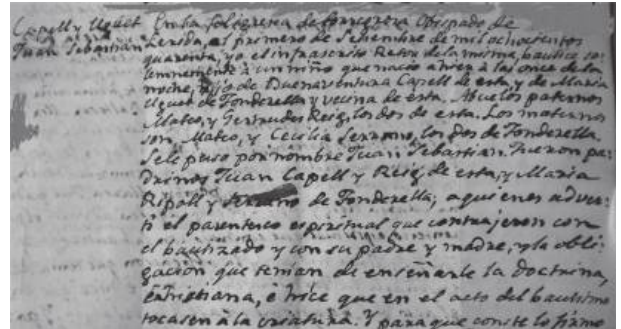 Capell y Uguet En la feligresia de Torregrosa Obispado de
Juan Sebastian Lerida, al primero de Setiembre de mil ochocientos
quarenta, yo el infrascrito Retor de la misma, bautice so-
lemnemente à un niño que nacio a las once de la
noche, hijo de Buenaventura Capell de esta, y de Maria
Uguet de Fonderella y vecina de esta. Abuelos paternos
Mateo, y Gertrudes Reig, los dos de esta. Los maternos
son, Mateo, y Cecilia Serrano, los dos de Fonderella.
Se le puso por nombre Juan Sebastian. Fueron pa-
drinos Juan Capell y Reig de esta, y Maria
Ripoll y de Fonderella, a quienes adver-
ti el parentesco espiritual que contrajeron con
el bautizado y con su padre y madre, y la obli-
gacion que tenian de enseñarle la doctrina
christiana, è hice que en el acto del bautismo
tocasen à la criatura. Y para que conste lo firmo